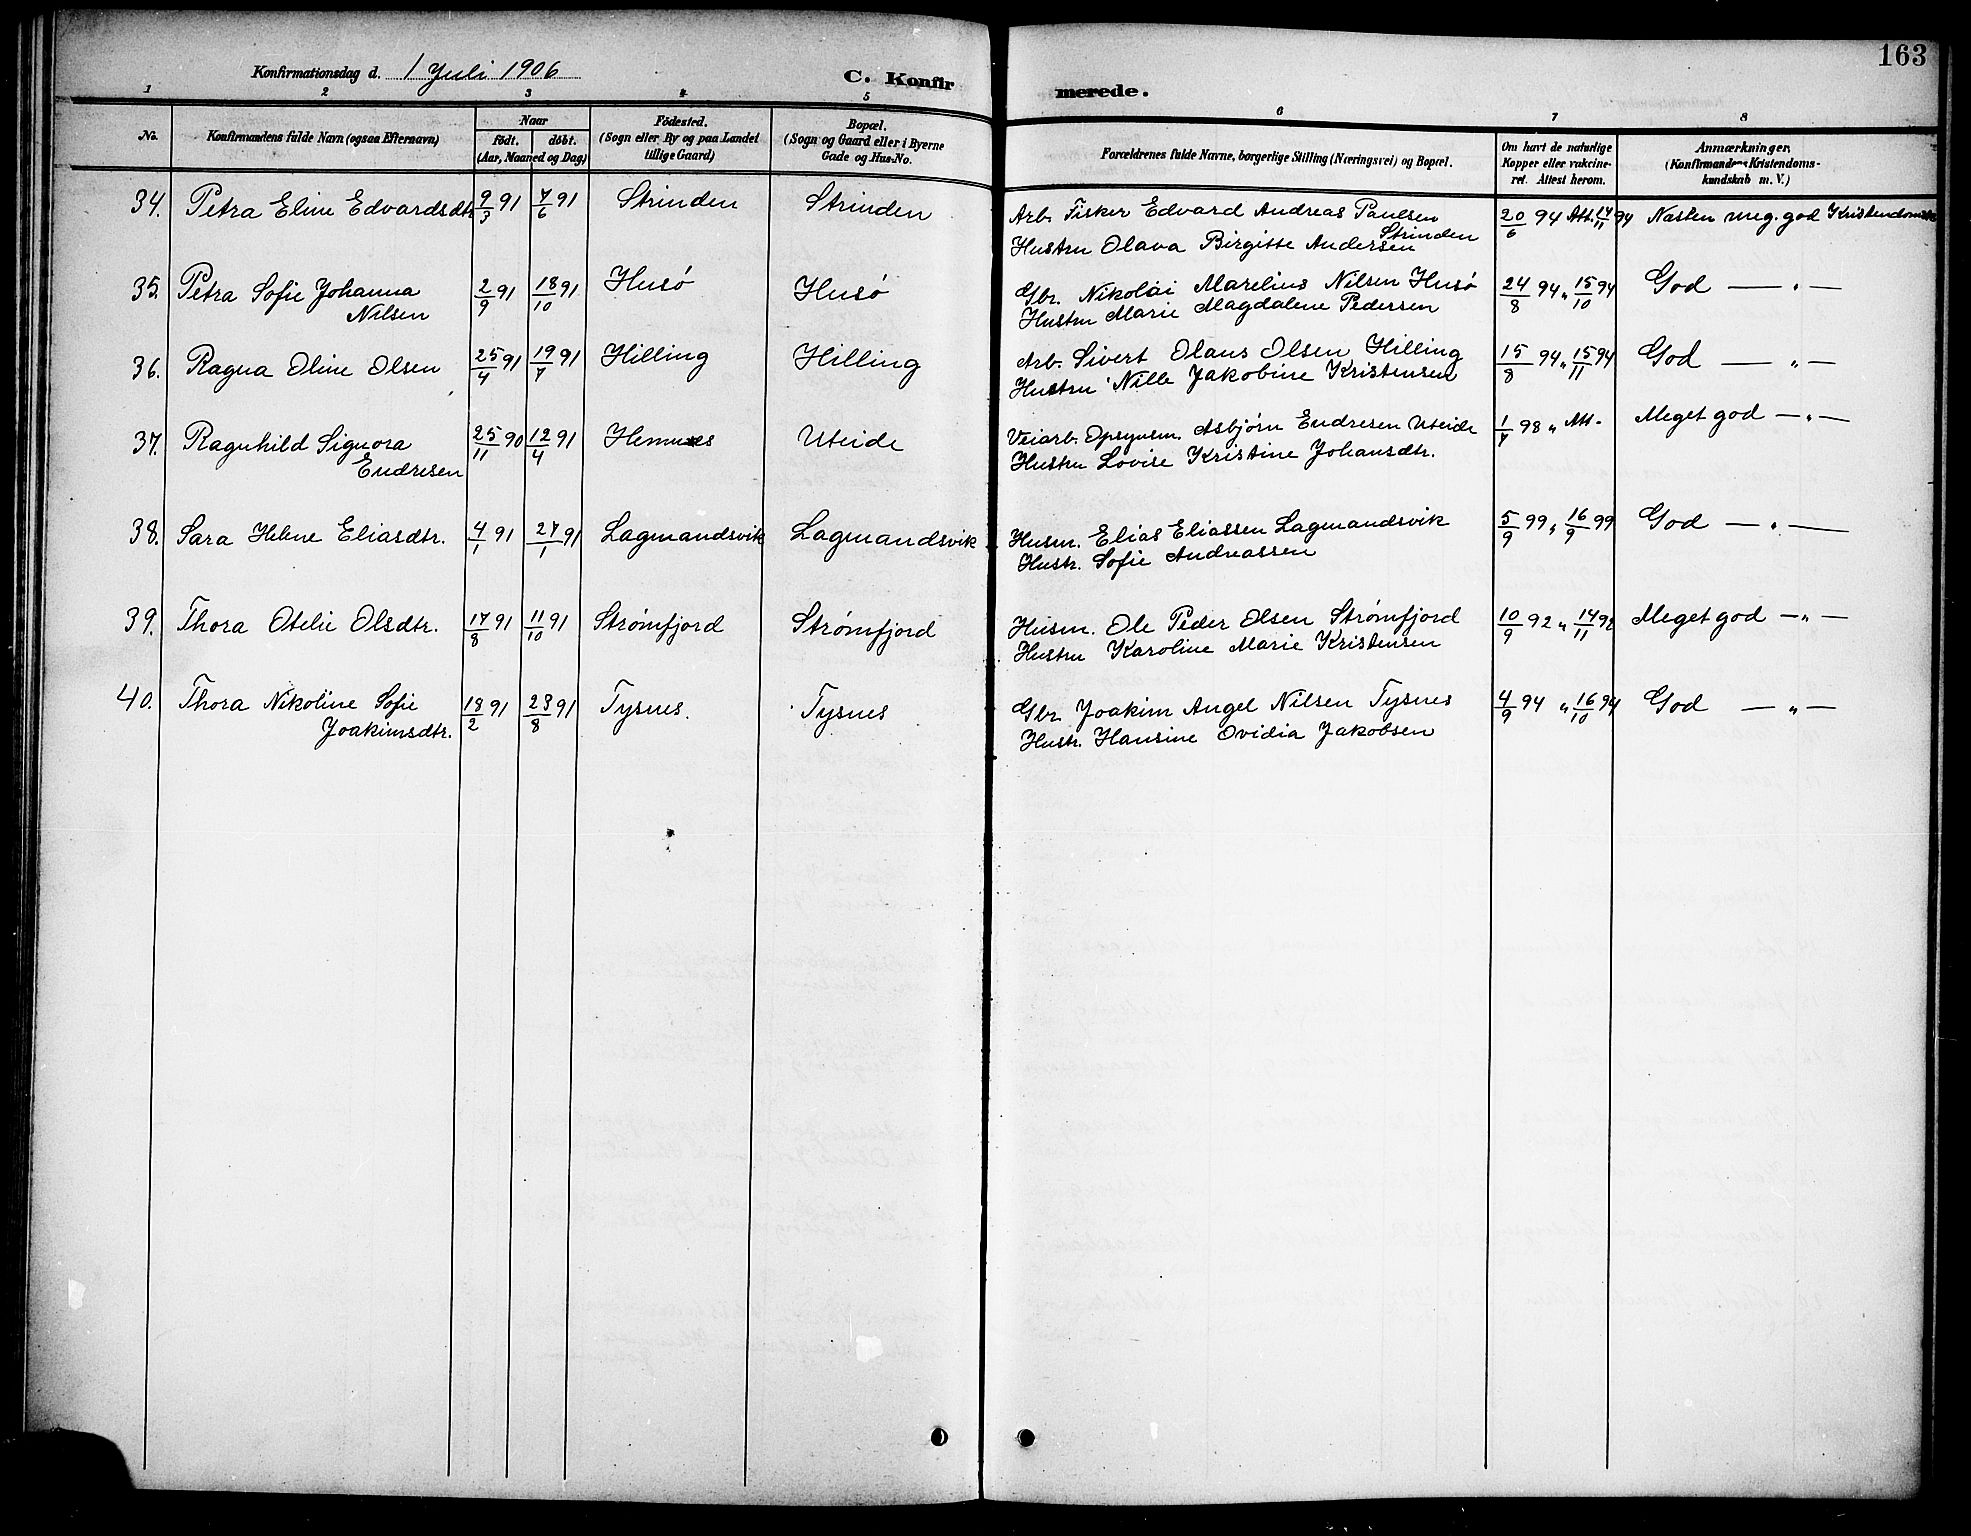 163
Konfirmationsdag d. 1 Juli 1906
C. Konfir
merede.
1 2 3 4 5 6 7 8
No.
Konfirmandens fulde Navn (ogsaa Efternavn)
Naar
født. døbt.
(Aar, Maaned og Dag)
Fødested.
(Sogn eller By og paa Landet
tillige Gaard)
Bopæl.
(Sogn og Gaard eller i Byerne
Gade og Hus-No.
Forældrenes fulde Navne, borgerlige Stilling (Næringsvei) og Bopæl.
Om havt de naturlige
Kopper eller vakcine-
ret. Attest herom.
Anmærkninger.
(Konfirmandens Kristendoms-
kundskab m. V.)
34. Petra Eline Edvardsdtr. 9/3 91 7/6 91 Strinden Strinden Arb. Fisker Edvard Andreas Paulsen 20/6 94 Att. 14/11 94 Næsten meg. god Kristendomsk
Strinden
Hustru Olava Birgitte Andersen
35. Petra Sofie Johanna 2/9 91 18/10 91 Husø Husø Gbr. Nikolai Marelius Nilsen Husø 24/8 94 „ 15/10 94 God — „ —
Nilsen Hustru Marie Magdalene Pedersen
36. Ragna Oline Olsen 25/4 91 19/7 91 Hilling Hilling Arb. Sivert Olaus Olsen Hilling 15/8 94 „ 15/11 94 God — „ —
Hustru Nille Jakobine Kristensen
37. Ragnhild Signora 25/11 90 12/4 91 Hemnes Uteide Veiarb. Opsynsm. Asbjørn Endresen Uteide 1/7 98 „ Att. Meget god — „ —
Endresen Hustru Lovise Kristine Johansdtr.
38. Sara Helene Eliasdtr. 4/1 91 27/1 91 Lagmandsvik Lagmandsvik Husm. Elias Eliassen Lagmandsvik 5/9 99 „ 16/9 99 God — „ —
Hustr. Sofie Andreassen
39. Thora Otelie Olsdtr. 17/8 91 11/10 91 Strømfjord Strømfjord Husm. Ole Peder Olsen Strømfjord 10/9 92 „ 14/11 92 Meget god — „ —
Hustru Karoline Marie Kristensen
40. Thora Nikoline Sofie 18/2 91 23/8 91 Tysnes. Tysnes Gbr. Joakim Angel Nilsen Tysnes 4/9 94 „ 16/10 94 God — „ —
Joakimsdtr. Hustr. Hansine Ovidia Jakobsen